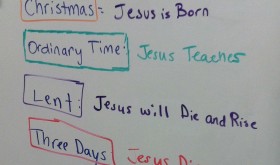 Christmas = Jesus is Born
Ordinary Time: Jesus Teaches
Lent: Jesus will Die and Rise
Three Days Jesus